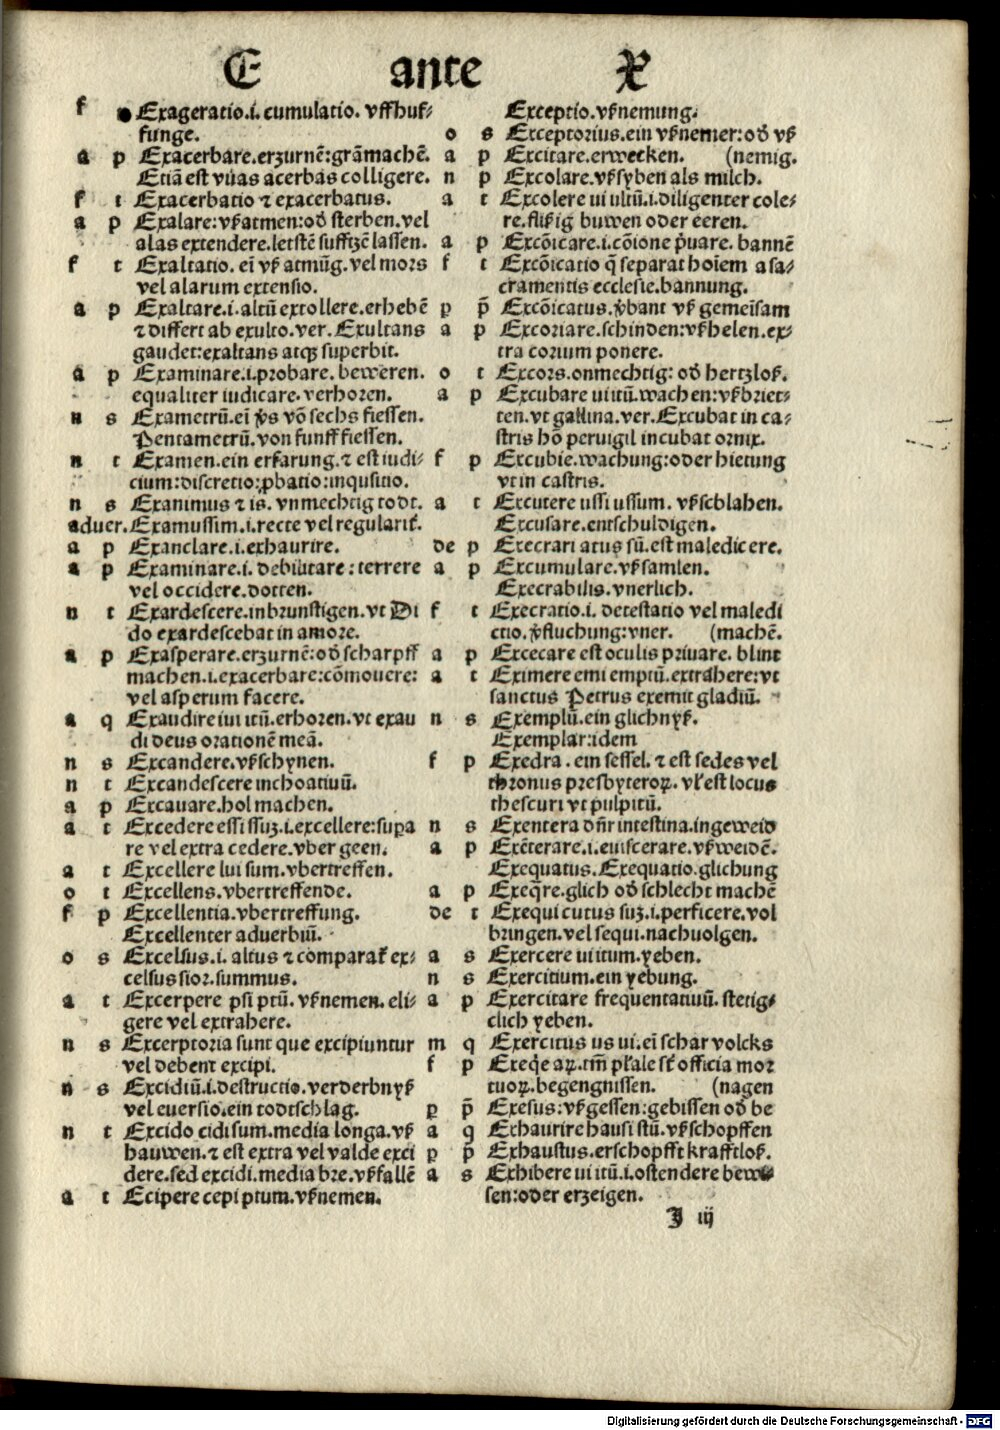 E ante X
f Exageratio.i. cumulatio. vffhuf⸗
funge.
a p Exacerbare.erzurnē:grāmachē.
Etiā est vuas acerbas colligere.
f t Exacerbatio ⁊ exacerbatus.
a p Exalare:vßatmen:od̕ sterben.vel
alas extendere.letstē sufftzē lassen.
f t Exaltatio. eī vß atmūg.vel mors
vel alarum extensio.
a p Exaltare.i.altū extollere.erhebē
⁊ differt ab exulto.ver. Exultans
gaudet:exaltans atqꝫ superbit.
a p Examinare.i.probare. beweren.
equaliter iudicare.verhoren.
n s Exametrū.eī v̕s vō sechs fiessen.
Pentametrū.von funff fiessen.
n t Examen.ein erfarung.⁊ est iudi⸗
cium:discretio:ꝓbatio:inqusitio.
n s Exanimus ⁊ is. vnmechtig todt.
aduer. Examussim.i.recte vel regularit̕.
a p Exanclare.i.exhaurire.
a p Examinare.i. debilitare: terrere
vel occidere.dotten.
n t Exardescere.inbrunstigen.vt Di
do exardescebat in amore.
a p Exasperare.erzurnē:od̕ scharpff
machen.i.exacerbare:cōmouere:
vel asperum facere.
a q Exaudire iui itū.erhoren.vt exau
di deus orationē meā.
n s Excandere.vßschynen.
n t Excandescere inchoatiuū.
a p Excauare.hol machen.
a t Excedere essi ssuꝫ.i.excellere:supa
re vel extra cedere.vber geen.
a t Excellere lui sum.vbertreffen.
o t Excellens.vbertreffende.
f p Excellentia.vbertreffung.
Excellenter aduerbiū.
o s Excelsus.i. altus ⁊ comparat̕ ex⸗
celsus sior.summus.
a t Excerpere psi ptū. vßnemen. eli⸗
gere vel extrahere.
n s Excerptoria sunt que excipiuntur
vel debent excipi.
n s Excidiū.i.destructio.verderbnyß
vel euersio.ein todtschlag.
n t Excido cidi sum.media longa.vß
hauwen.⁊ est extra vel valde exci
dere.sed excidi.media bre.vßfallē
a t Ecipere cepi ptum.vßnemen.
Exceptio.vßnemung.
o s Exceptorius.ein vßnemer:od̕ vß
a p Excitare.erwecken. (nemig.
n p Excolare.vßsyhen als milch.
a t Excolere ui ultū.i.diligenter cole⸗
re.flißig buwen oder eeren.
a p Excōicare.i.cōione p̕uare. bannē
f t Excōicatio q̄ separat hoīem a sa⸗
cramentis ecclesie.bannung.
p p̄ Excōicatus.v̕bant vß gemeīsam
a p Excoriare.schinden:vßhelen.ex⸗
tra corium ponere.
o t Excors.onmechtig: od̕ hertzloß.
a p Excubare ui itū.wachen:vßbriet⸗
ten.vt gallina.ver.Excubat in ca⸗
stris hō peruigil incubat ornix.
f p Excubie.wachung:oder hietung
vt in castris.
a t Excutere ussi ussum. vßschlahen.
Excusare.entschuldigen.
de p Execrari atus sū.est maledicere.
a p Excumulare.vßsamlen.
Execrabilis.vnerlich.
f t Execratio.i. detestatio vel maledi
ctio.v̕fluchung:vner. (machē.
a p Excecare est oculis priuare. blint
a t Eximere emi emptū.extrahere:vt
sanctus Petrus exemit gladiū.
n s Exemplū.ein glichnyß.
Exemplar:idem
f p Exedra . ein sessel. ⁊ est sedes vel
thronus presbyteroꝝ. vl̕ est locus
thescuri vt pulpitū.
n s Exentera dn̄r intestina.ingeweid
a p Exēterare.i.euiscerare.vßweidē.
Exequatus. Exequatio.glichung
a p Exeq̄re.glich od̕ schlecht machē
de t Exequi cutus suꝫ.i.perficere.vol
bringen.vel sequi.nachuolgen.
a s Exercere ui itum.yeben.
n s Exercitium.ein yebung.
a p Exercitare frequentatiuū. stetig⸗
clich yeben.
m q Exercitus us ui.eī schar volcks
f p Exeq̄e aꝝ.tm̄ pl̕ale st̕ officia mor
tuoꝝ.begengnissen. (nagen
p p̄ Exesus:vßgessen:gebissen od̕ be
a q Exhaurire hausi stū.vßschopffen
p p̄ Exhaustus.erschopfft krafftloß.
a s Exhibere ui itū.i.ostendere bewi
sen:oder erzeigen.
J iij
Digitalisierung gefördert durch die Deutsche Forschungsgemeinschaft - DFG